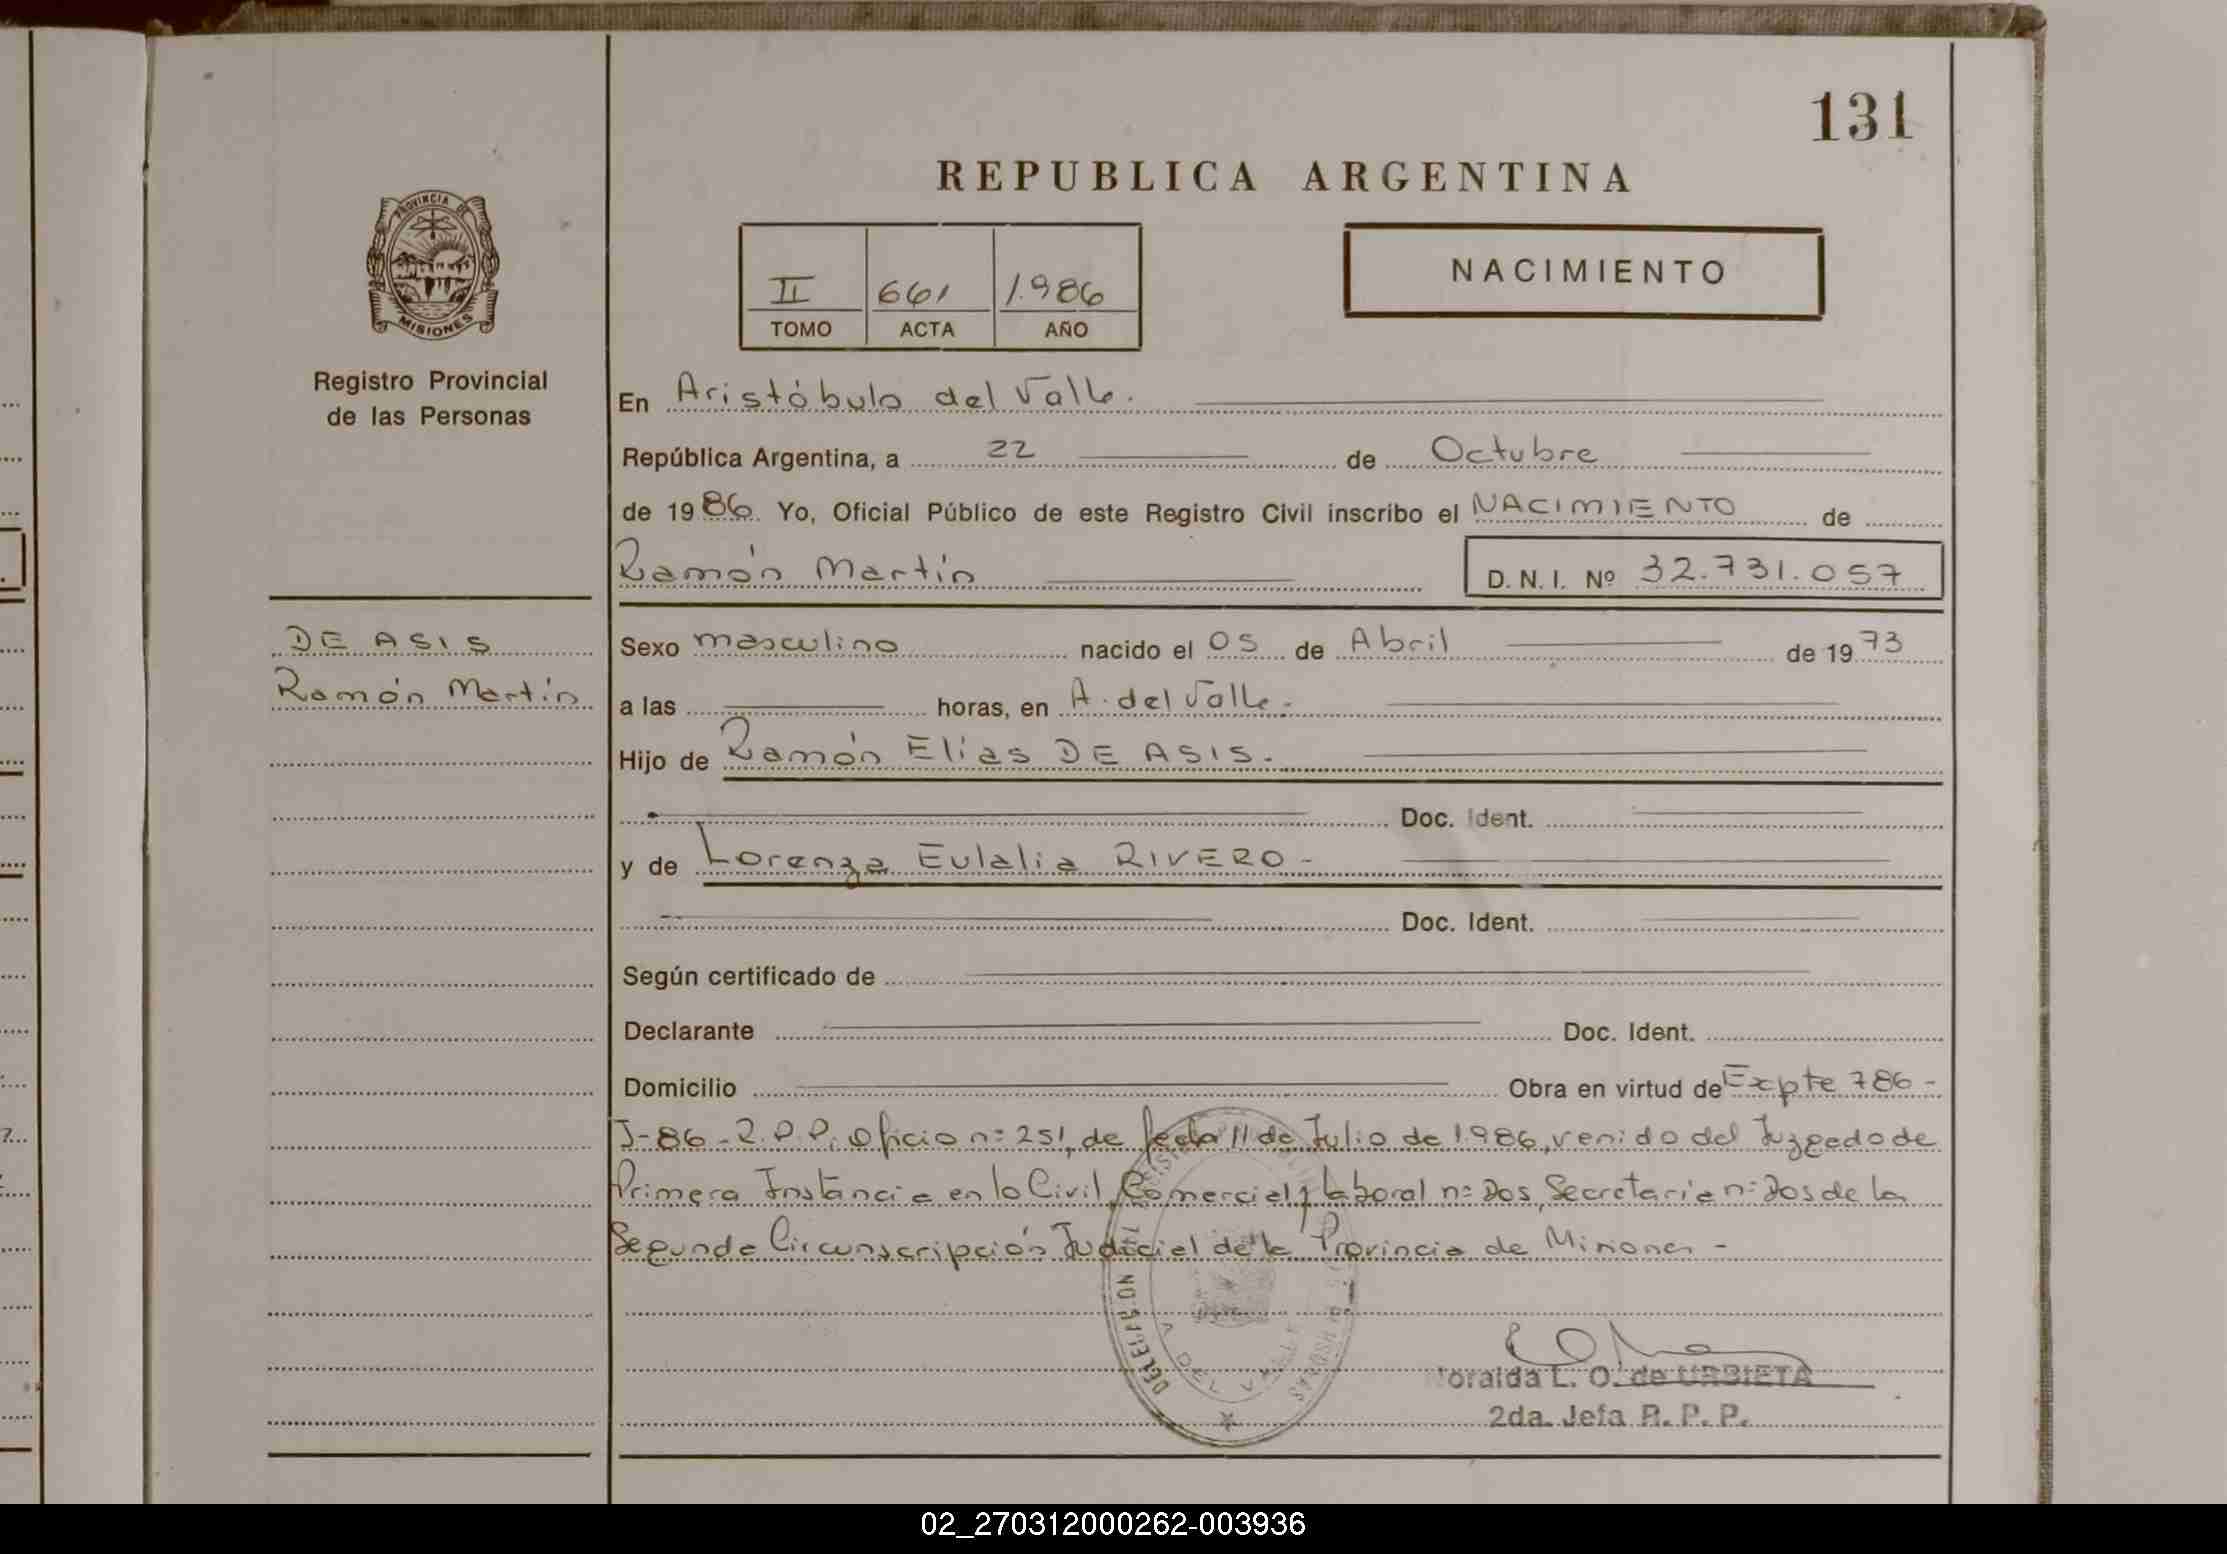 131
REPUBLICA ARGENTINA
PROVINCIA DE
MISIONES
II 661 1.986
TOMO ACTA AÑO
NACIMIENTO
Registro Provincial
de las Personas
En Aristóbulo del Valle.
República Argentina, a 22 de Octubre
de 1986. Yo, Oficial Público de este Registro Civil inscribo el NACIMIENTO de
Ramón Martín D. N. I. Nº 32.731.057
DE ASIS
Ramón Martín
Sexo masculino nacido el 05 de Abril de 1973
a las horas, en A. del Valle.
Hijo de Ramón Elias DE ASIS.
Doc. Ident.
y de Lorenza Eulalia RIVERO-
Doc. Ident.
Según certificado de
Declarante Doc. Ident.
Domicilio Obra en virtud de Expte 786-
J-86-R.P.P. Oficio n= 251, de fecha 11 de Julio de 1.986, venido del Juzgado de
Primera Instancia en lo Civil, Comercial y Laboral n= Dos, Secretaría n= Dos de la
Segunda Circunscripción Judicial de la Provincia de Misiones -
A DEL VALLE
L. O. de URBIETA
2da. Jefa R. P. P.
02_270312000262-003936